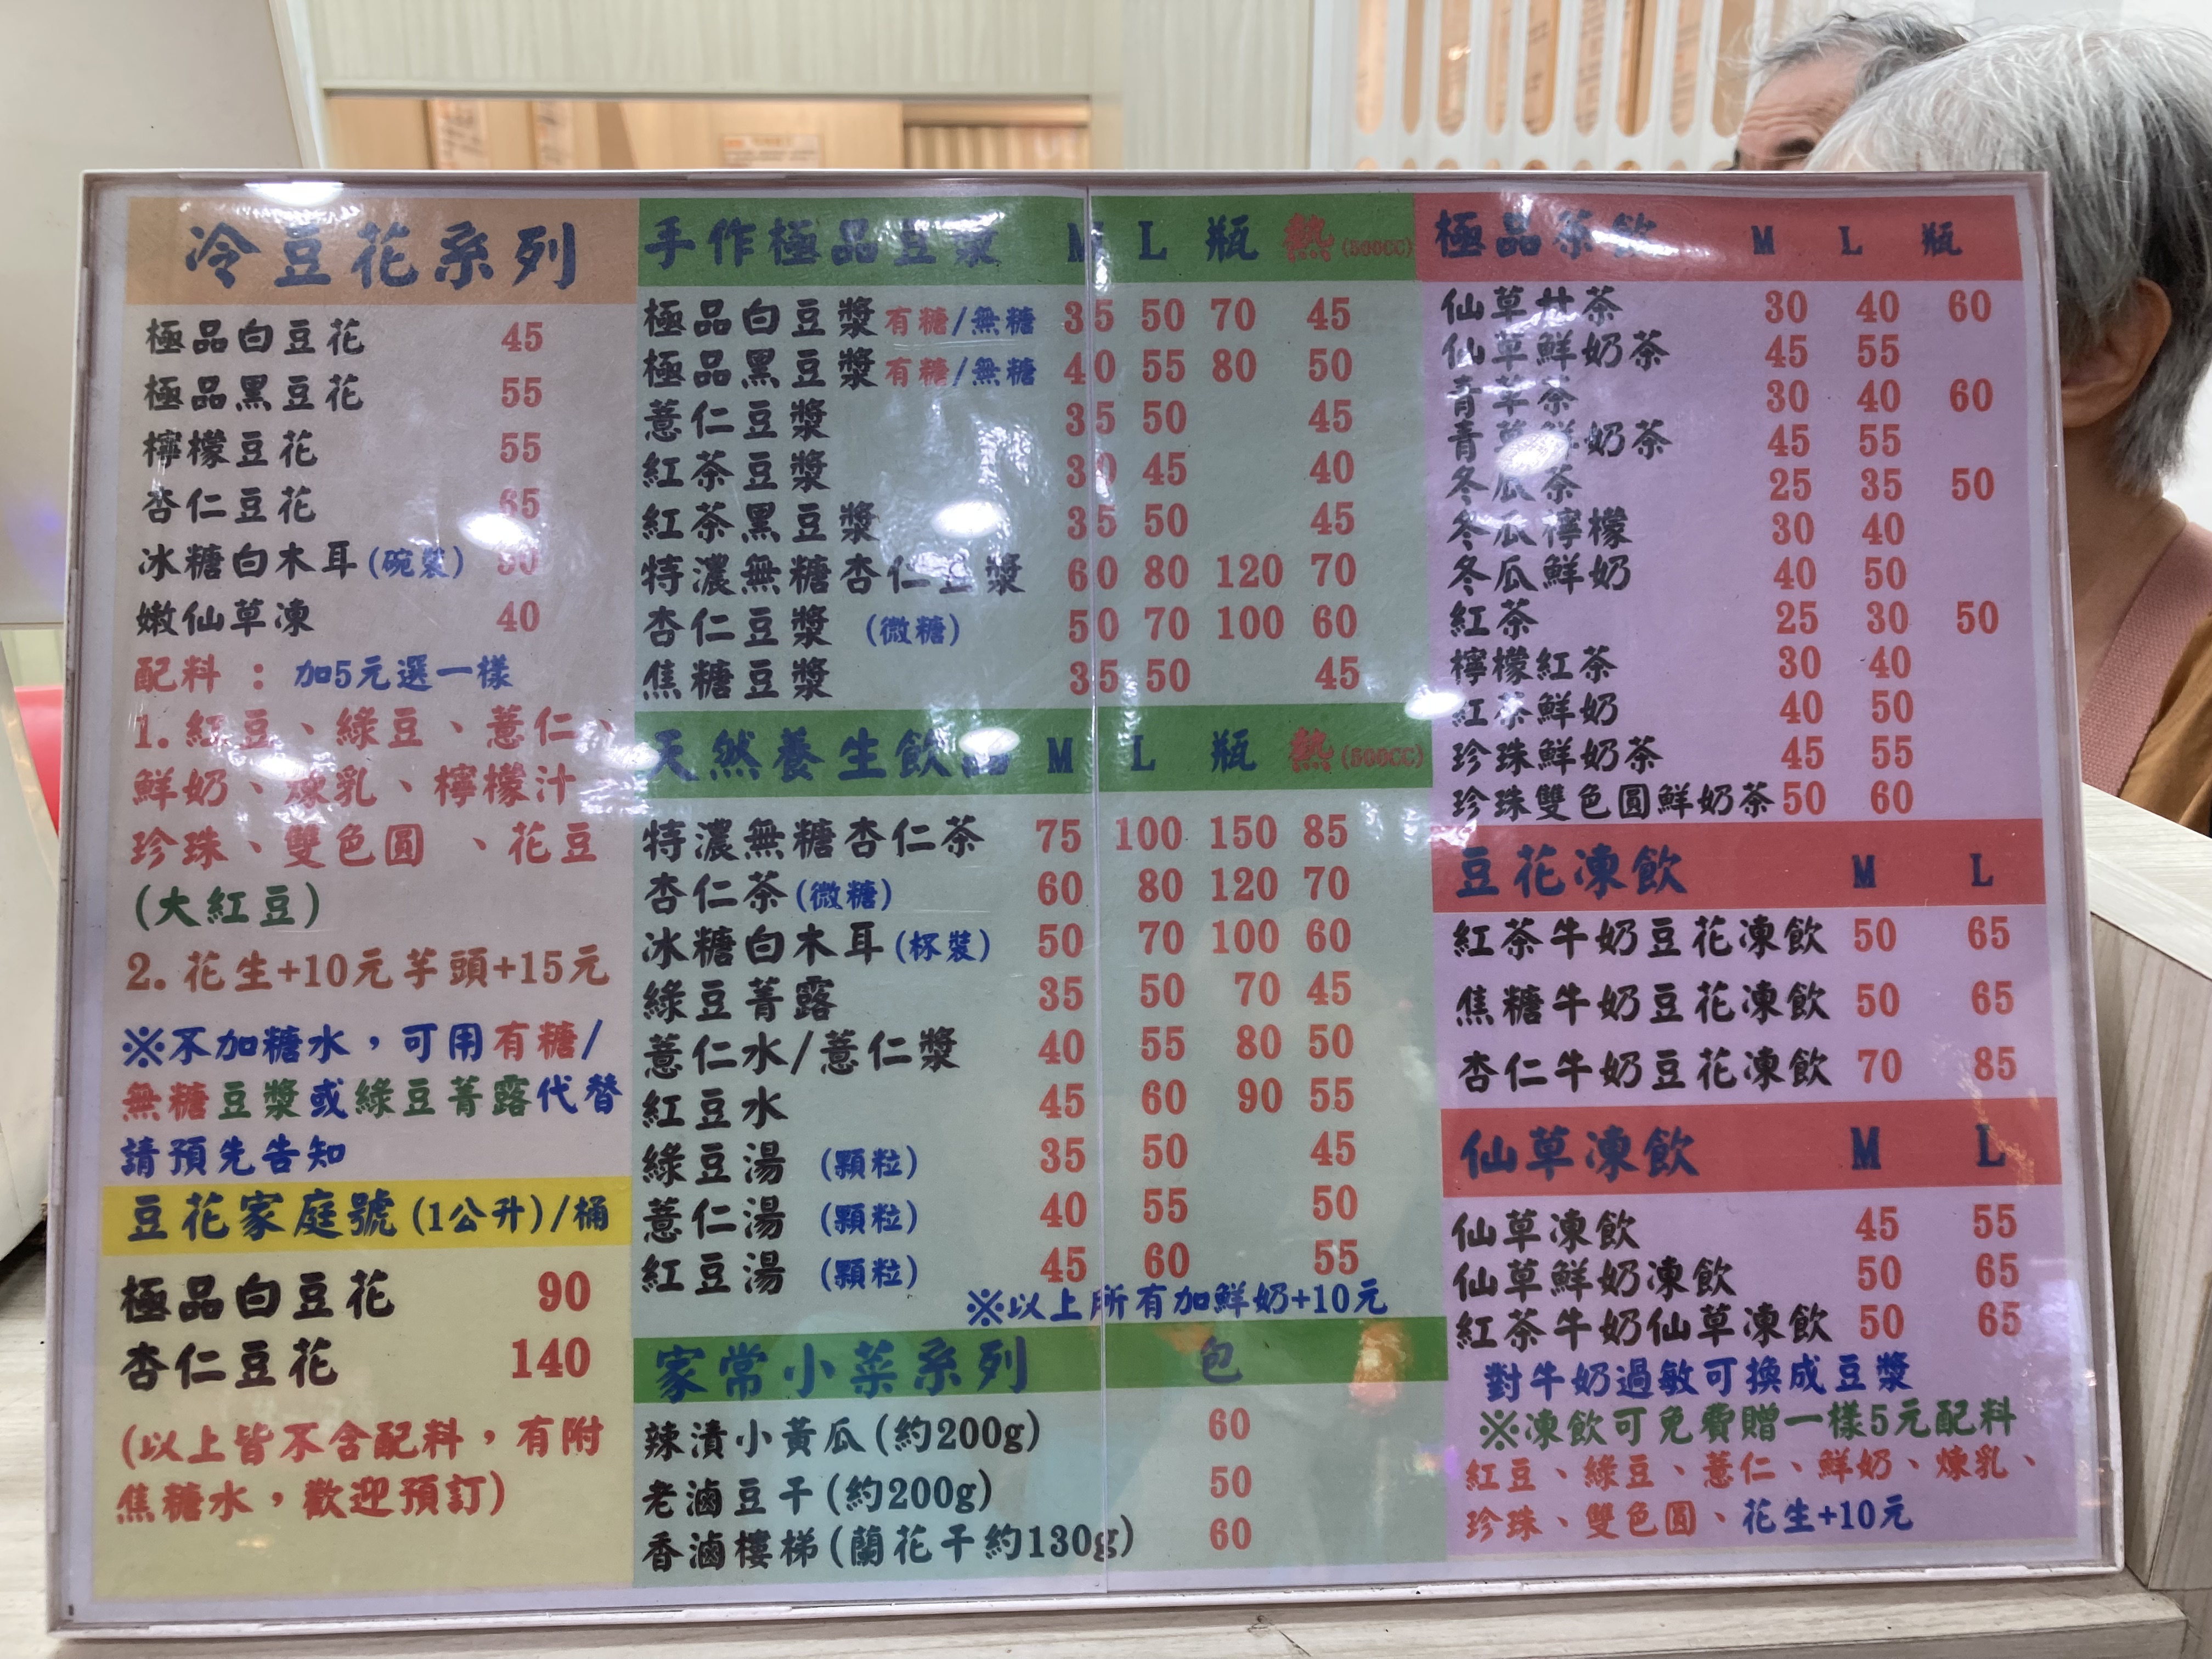 冷豆花系列
極品白豆花 45
極品黑豆花 55
檸檬豆花 55
杏仁豆花 65
冰糖白木耳(碗裝)
嫩仙草凍 40
配料 : 加5元選一樣
1.紅豆、綠豆、薏仁、
鮮奶、煉乳、檸檬汁
珍珠、雙色圓 、花豆
(大紅豆)
2.花生+10元芋頭+15元
※不加糖水，可用有糖/
無糖豆漿或綠豆菁露代替
請預先告知
豆花家庭號(1公升)/桶
極品白豆花 90
杏仁豆花 140
(以上皆不含配料，有附
焦糖水，歡迎預訂)
手作極品豆漿 M L 瓶 熱(500CC)
極品白豆漿有糖/無糖 35 50 70 45
極品黑豆漿有糖/無糖 40 55 80 50
薏仁豆漿 35 50 45
紅茶豆漿 30 45 40
紅茶黑豆漿 35 50 45
特濃無糖杏仁豆漿 60 80 120 70
杏仁豆漿 (微糖) 50 70 100 60
焦糖豆漿 35 50 45
天然養生飲品 M L 瓶 熱(500CC)
特濃無糖杏仁茶 75 100 150 85
杏仁茶(微糖) 60 80 120 70
冰糖白木耳(杯裝) 50 70 100 60
綠豆菁露 35 50 70 45
薏仁水/薏仁漿 40 55 80 50
紅豆水 45 60 90 55
綠豆湯 (顆粒) 35 50 45
薏仁湯 (顆粒) 40 55 50
紅豆湯 (顆粒) 45 60 55
※以上所有加鮮奶+10元
家常小菜系列 包
辣漬小黃瓜(約200g) 60
老滷豆干(約200g) 50
香滷樓梯(蘭花干約130g) 60
極品茶飲 M L 瓶
仙草甘茶 30 40 60
仙草鮮奶茶 45 55
青草茶 30 40 60
青草鮮奶茶 45 55
冬瓜茶 25 35 50
冬瓜檸檬 30 40
冬瓜鮮奶 40 50
紅茶 25 30 50
檸檬紅茶 30 40
紅茶鮮奶 40 50
珍珠鮮奶茶 45 55
珍珠雙色圓鮮奶茶 50 60
豆花凍飲 M L
紅茶牛奶豆花凍飲 50 65
焦糖牛奶豆花凍飲 50 65
杏仁牛奶豆花凍飲 70 85
仙草凍飲 M L
仙草凍飲 45 55
仙草鮮奶凍飲 50 65
紅茶牛奶仙草凍飲 50 65
對牛奶過敏可換成豆漿
※凍飲可免費贈一樣5元配料
紅豆、綠豆、薏仁、鮮奶、煉乳、
珍珠、雙色圓、花生+10元